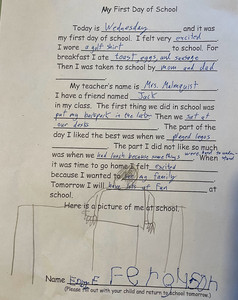 My First Day of School
Today is Wednesday and it was
my first day of school. I felt very excited
I wore a golf shirt to school. For
breakfast I ate toast eggs, and sausage
Then I was taken to school by mom and dad
My teacher's name is Mrs. Malmquist
I have a friend named Jack
in my class. The first thing we did in school was
put my backpack in the Then we sat at
our desks. The part of the
day I liked the best was when we played legos
. The part I did not like so much
was when we had lunch because some things were hard to . When
it was time to go home I felt excited
because I wanted to see my family
Tomorrow I will have lots of fun at
school.
Here is a picture of me at school.
Name
(Please fill out with your child and return to school tomorrow.)